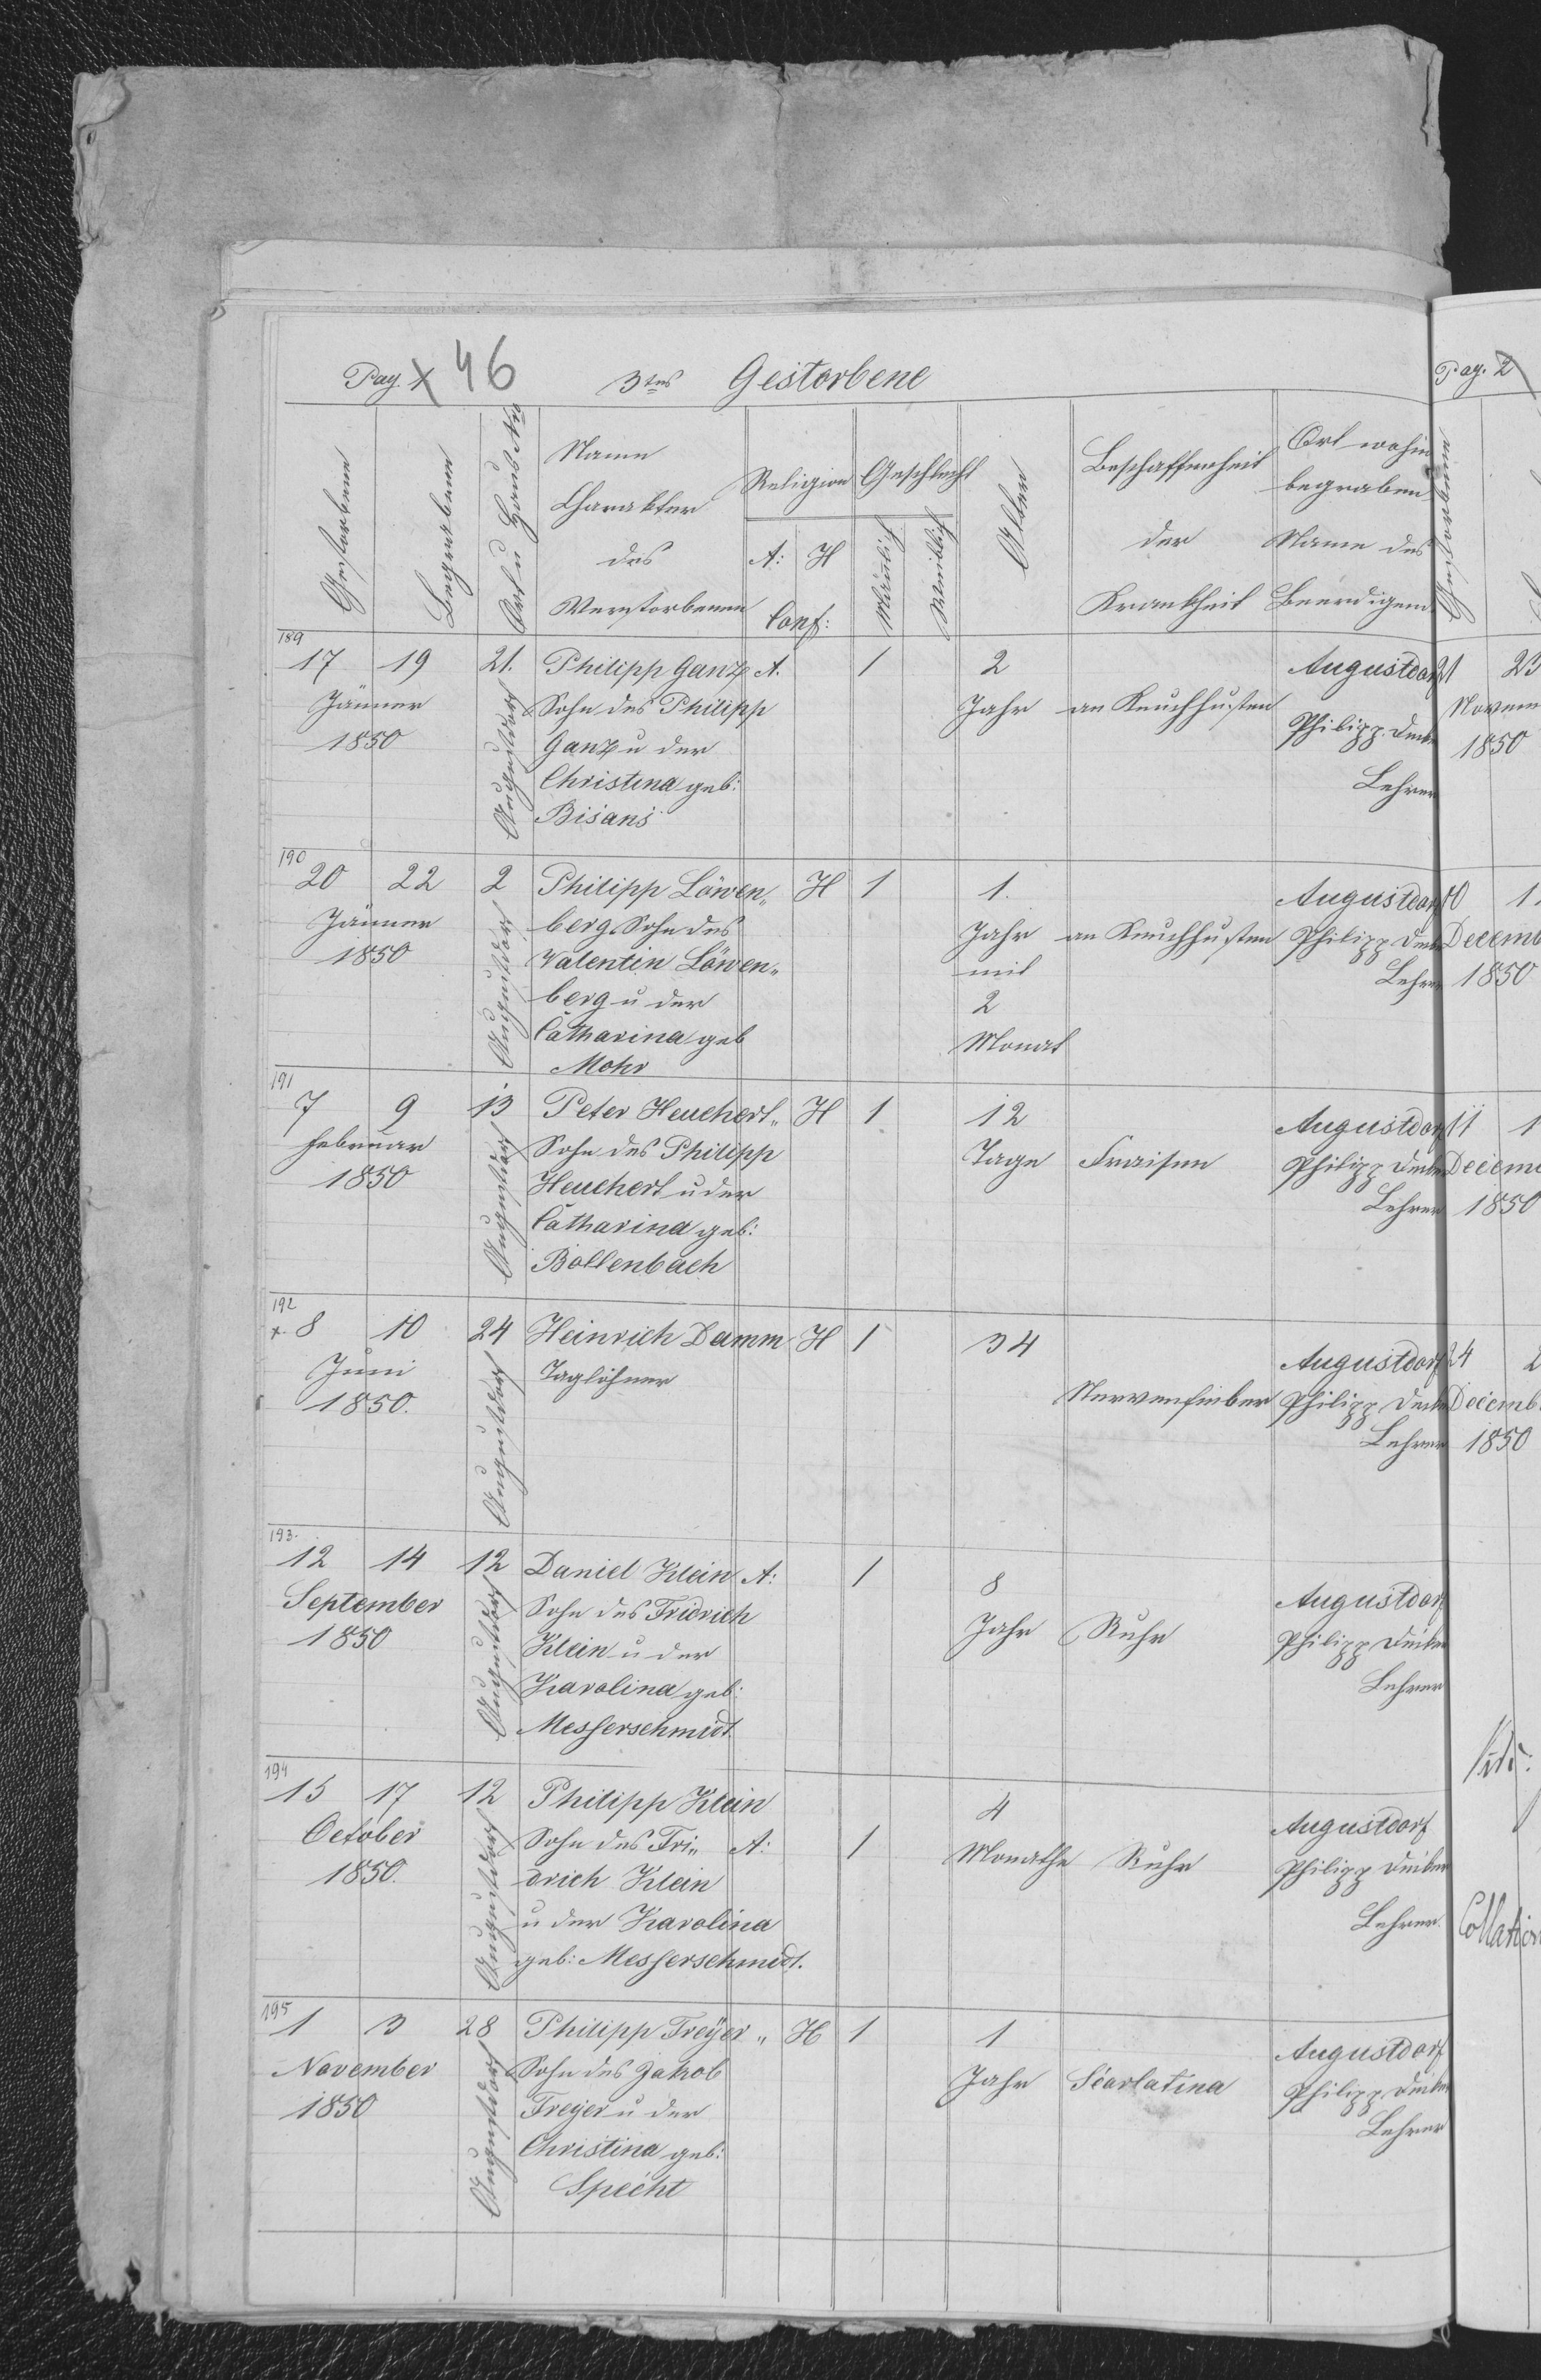 Pag. 1 46 3tes Gestorbene
Gestorbene
Begraben
Ort u Haus Nro
Name
Charakter
des
Verstorbenen
Religion
A: H
Conf:
Geschlecht
Mänlich
Weiblich
Alter
Beschaffenheit
der
Krankheit
Ort wohin
begraben
Name des
Beerdigend
189
17 19 21. Philipp Ganz A. 1 2 Augustdorf
Jänner Sohn des Philipp Jahr an Keuchhusten
1850 Ganz u der Philipp
Christina geb: Lehrer
Augustdorf Bisans
190
20 22 2 Philipp Löwen„ H 1 1. Augustdorf
Jänner berg Sohn des Jahr an Keuchhusten Philipp
1850 Valentin Löwen„ mit Lehrer
Augustdorf berg u der 2
Catharina geb Monat
Mohr
191
7 9 13 Peter Heuchert„ H 1 12 Augustdorf
Februar Sohn des Philipp Tage Fraisen Philipp
1850 Heuchert u der Lehrer
Augustdorf Catharina geb:
Bollenbach
192
x 8 10 24 Heinrich Damm H 1 34 Augustdorf
Juni Taglöhner
1850. Nervenfieber Philipp
Augustdorf Lehrer
193.
12 14 12 Daniel Klein A: 1 8 Augustdorf
September Sohn des Fridrich Jahr Ruhr Philipp
1850 Klein u der Lehrer
Augustdorf Karolina geb:
Messerschmidt.
194
15 17 12 Philipp Klein 4 Augustdorf
October Sohn des Fri„ A: 1 Monathe Ruhr Philipp
1850. drich Klein Lehrer.
Augustdorf u der Karolina
geb: Messerschmidt.
195
1 3 28 Philipp Freÿer „ H 1 1 Augustdorf
November Sohn des Jakob Jahr Scarlatina Philipp
1850 Freyer u der Lehrer
Augustdorf Christina geb:
Specht
Pag. 2
Gestorbene
21 23
Novem
1850
10 1
Decemb
1850
11 1
Decem
1850
24 2
Decemb
1850
Collation